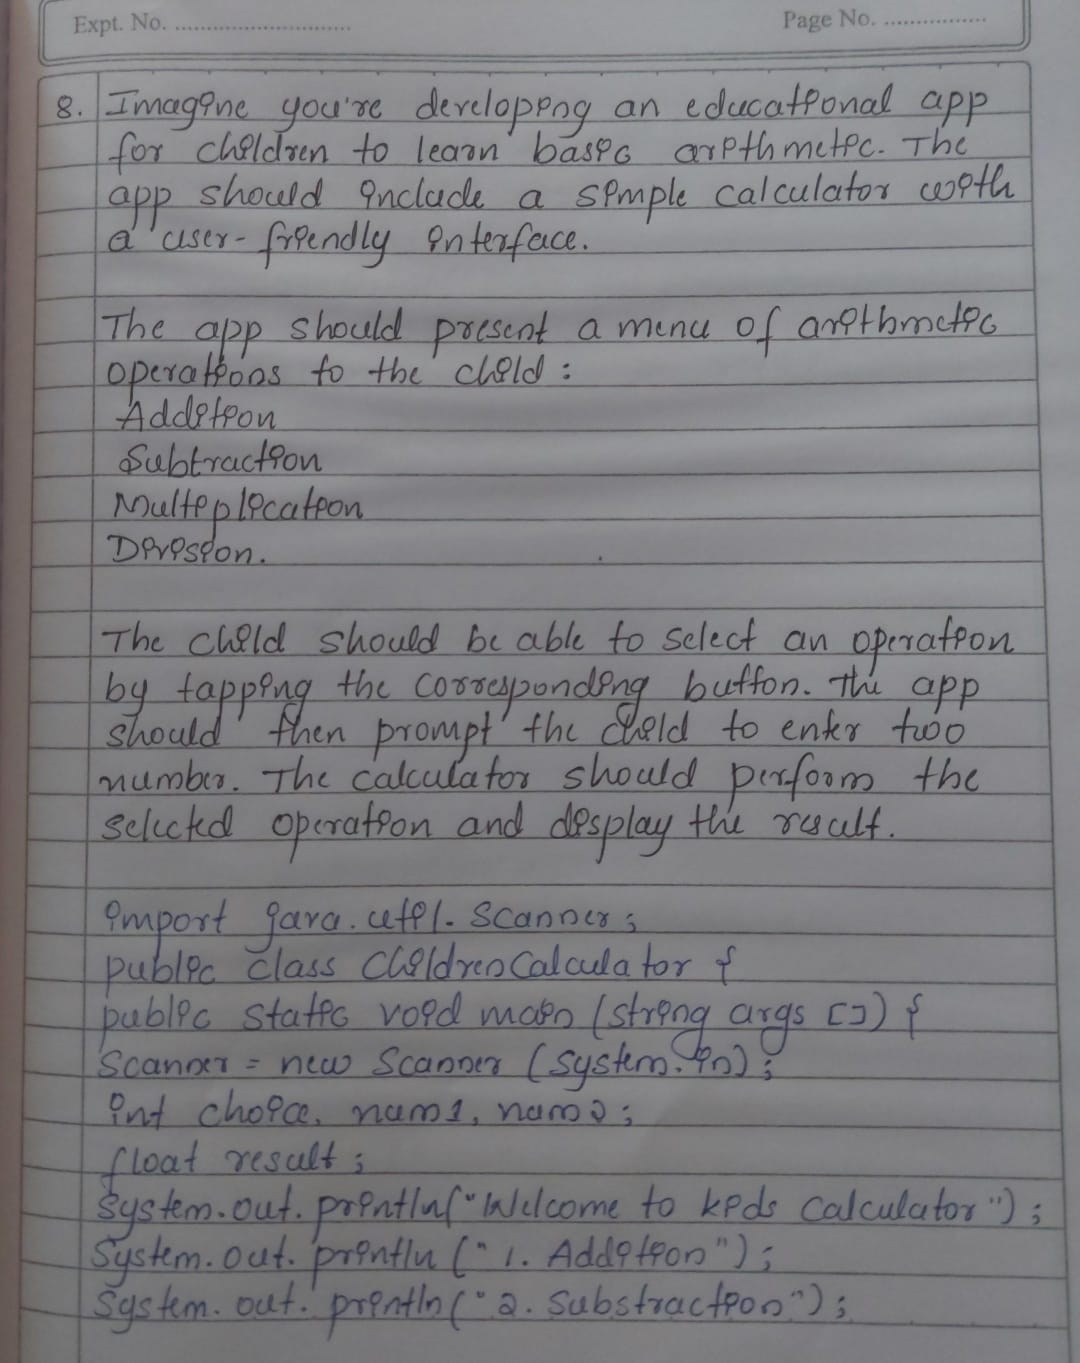 Expt. No. ............................
Page No. .................
8. Imagine you're developing an educational app
for children to learn basic arithmetic. The
app should include a simple calculator with
a user-friendly interface.
The app should present a menu of arithmetic
operations to the child :
Addition
Subtraction
Multiplication
Division.
The child should be able to select an operation
by tapping the corresponding button. The app
should then prompt the child to enter two
number. The calculator should perform the
selected operation and display the result.
import java.util.Scanner;
public class ChildrenCalculator {
public static void main (string args []) {
Scanner = new Scanner (System.in);
int choice, num1, num2;
float result;
System.out.println("Welcome to kids calculator");
System.out.println ("1. Addition");
System.out.println ("2. Substraction");